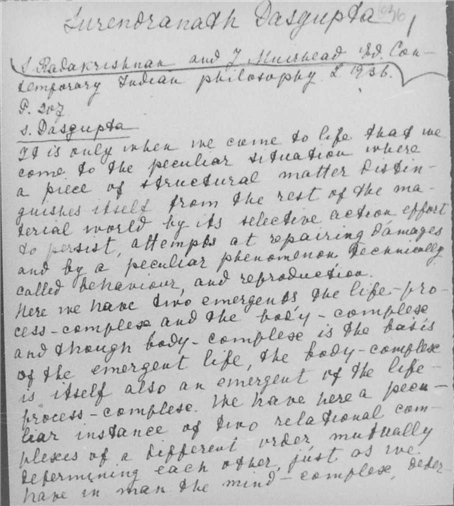 Surendranath Dasgupta
S. Radakrishnan and J. Muirhead Ed. Con-
temporary Indian philosophy L 1936.
P. 257
S. Dasgupta
It is only when we come to life that we
come to the peculiar situation where
a piece of structural matter distin-
guishes itself from the rest of the ma-
terial world by its selective action effort
to persist, attempts at repairing damages
and by a peculiar phenomenon technically
called behaviour, and reproduction.
Here we have two emergents the life-pro-
cess-complex and the body-complex
and though body-complex is the basis
of the emergent life, the body-complex
is itself also an emergent of the life-
process-complex. We have here a pecu-
liar instance of two relational com-
plexes of a different order mutually
determining each other, just as we
have in man the mind-complex, deter-